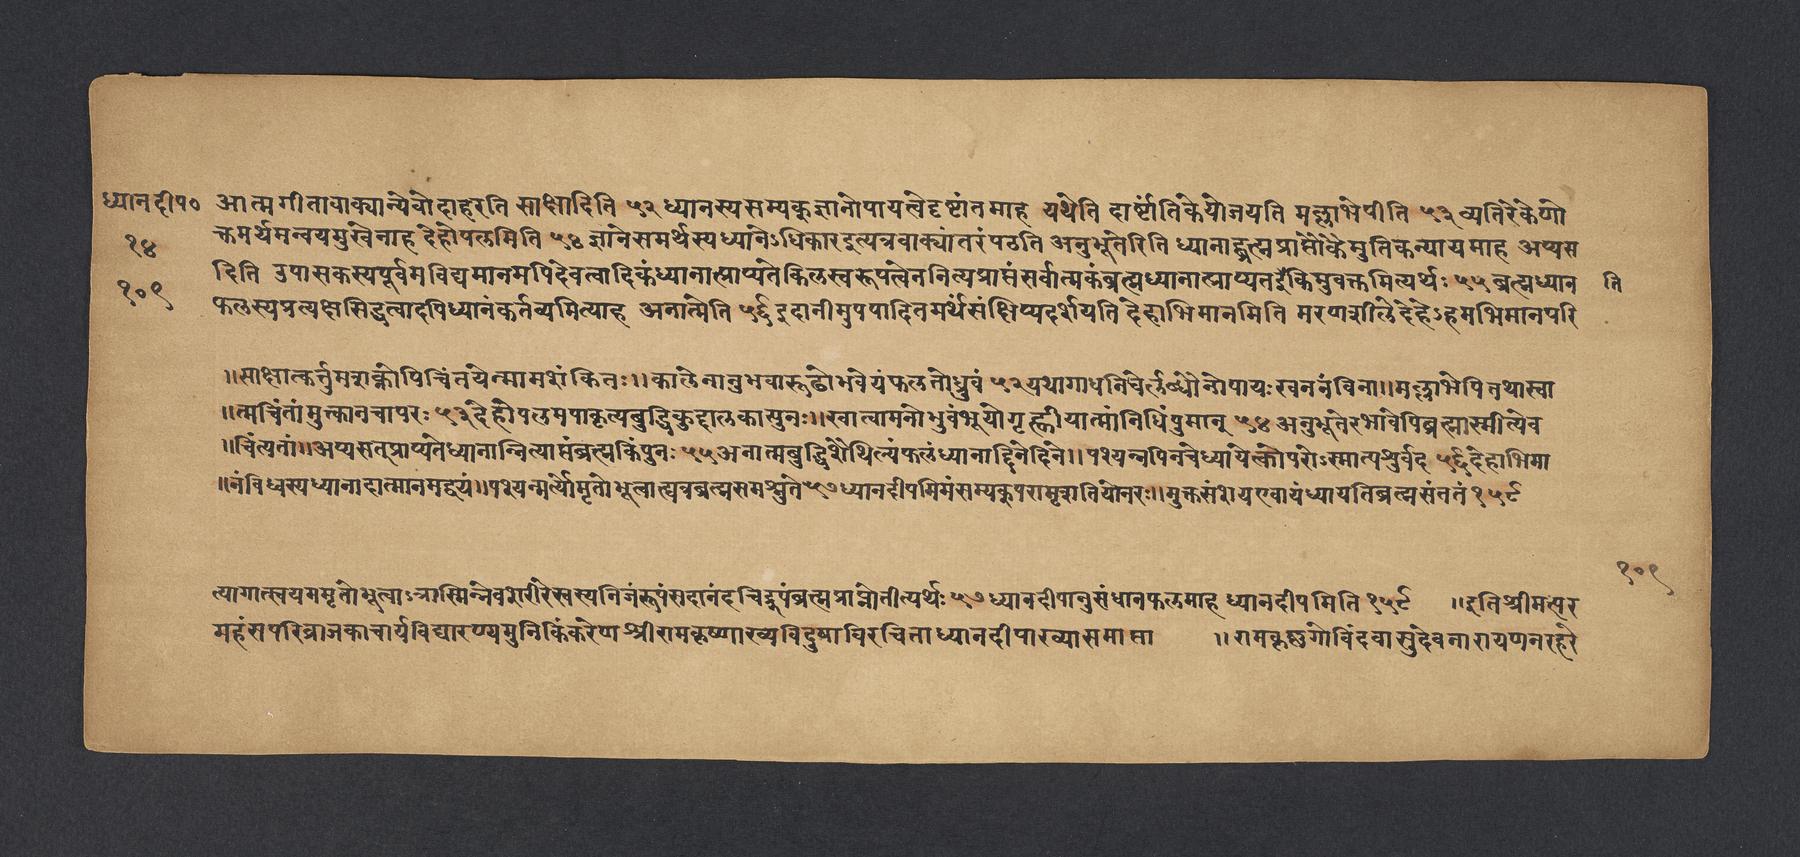 ध्यानदीप०
१४
१०९
आत्मगीतावाक्यान्येवोदाहरति साक्षादिति ५२ ध्यानस्यसम्यक्ज्ञानोपायत्वेदृष्टांतमाह यथेति दार्ष्टांतिकेयोजयति मल्लाभेपीति ५३ व्यतिरेकेणो
क्तमर्थमन्वयमुखेनाह देहोपलमिति ५४ ज्ञानेसमर्थस्यध्यानेऽधिकारइत्यत्रवाक्यांतरंपठति अनुभूतेरिति ध्यानाद्ब्रह्मप्राप्तौकैमुतिकन्यायमाह अप्यस
दिति उपासकस्यपूर्वमविद्यमानमपिदेवत्वादिकंध्यानात्प्राप्यतेकिलस्वरूपत्वेननित्यप्राप्तंसर्वात्मकंब्रह्मध्यानात्प्राप्यतइकिमुवक्तमित्यर्थः ५५ ब्रह्मध्यान
ति
फलस्यप्रत्यक्षसिद्धत्वादपिध्यानंकर्तव्यमित्याह अनात्मेति ५६ इदानीमुपपादितमर्थंसंक्षिप्यदर्शयति देहाभिमानमिति मरणशीलेदेहेऽहमभिमानपरि
॥साक्षात्कर्त्तुमशक्तोपिचिंतयेन्मामशंकितः॥कालेनानुभवारूढोभवेयंफलतोध्रुवं ५२ यथागाधनिधेर्लब्धौनोपायः खननंविना॥मल्लाभेपितथास्वा
॥त्मचिंतांमुक्त्कानचापरः ५३ देहोपलमपाकृत्यबुद्धिकुद्दालकात्पुनः॥खात्वामनोभुवंभूयोगृह्णीयान्मांनिधिंपुमान् ५४ अनुभूतेरभावेपिब्रह्मास्मीत्येव
॥चिंत्यतां॥अप्यसत्प्राप्यतेध्यानान्नित्याप्तंब्रह्मकिंपुनः ५५ अनात्मबुद्धिशैथिल्यंफलंध्यानाद्दिनेदिने॥पश्यन्नपिनचेध्यायेत्कोपरोऽस्मात्पशुर्वद ५६ देहाभिमा
॥नंविध्वस्यध्यानादात्मानमद्वयं॥पश्यन्मर्त्योमृतोभूत्वात्ह्यत्रब्रह्मसमश्नुते ५७ ध्यानदीपमिमंसम्यक्परामृशतियोनरः॥मुक्तसंशयएवायंध्यायतिब्रह्मसंततं १५८
१०९
त्यागात्स्वयममृतोभूत्वाऽत्रास्मिन्नेवशरीरेस्वस्यनिजंरूपंसदानंदचिद्रूपंब्रह्मप्राप्नोतीत्यर्थः ५७ ध्यानदीपानुसंधानफलमाह ध्यानदीपमिति १५८ ॥इतिश्रीमत्पर
महंसपरिव्राजकाचार्यविद्यारण्यमुनिकिंकरेणश्रीरामकृष्णाख्यविदुषाविरचिताध्यानदीपाख्यासमाप्ता ॥रामकृष्णगोविंदवासुदेवनारायणनरहरे